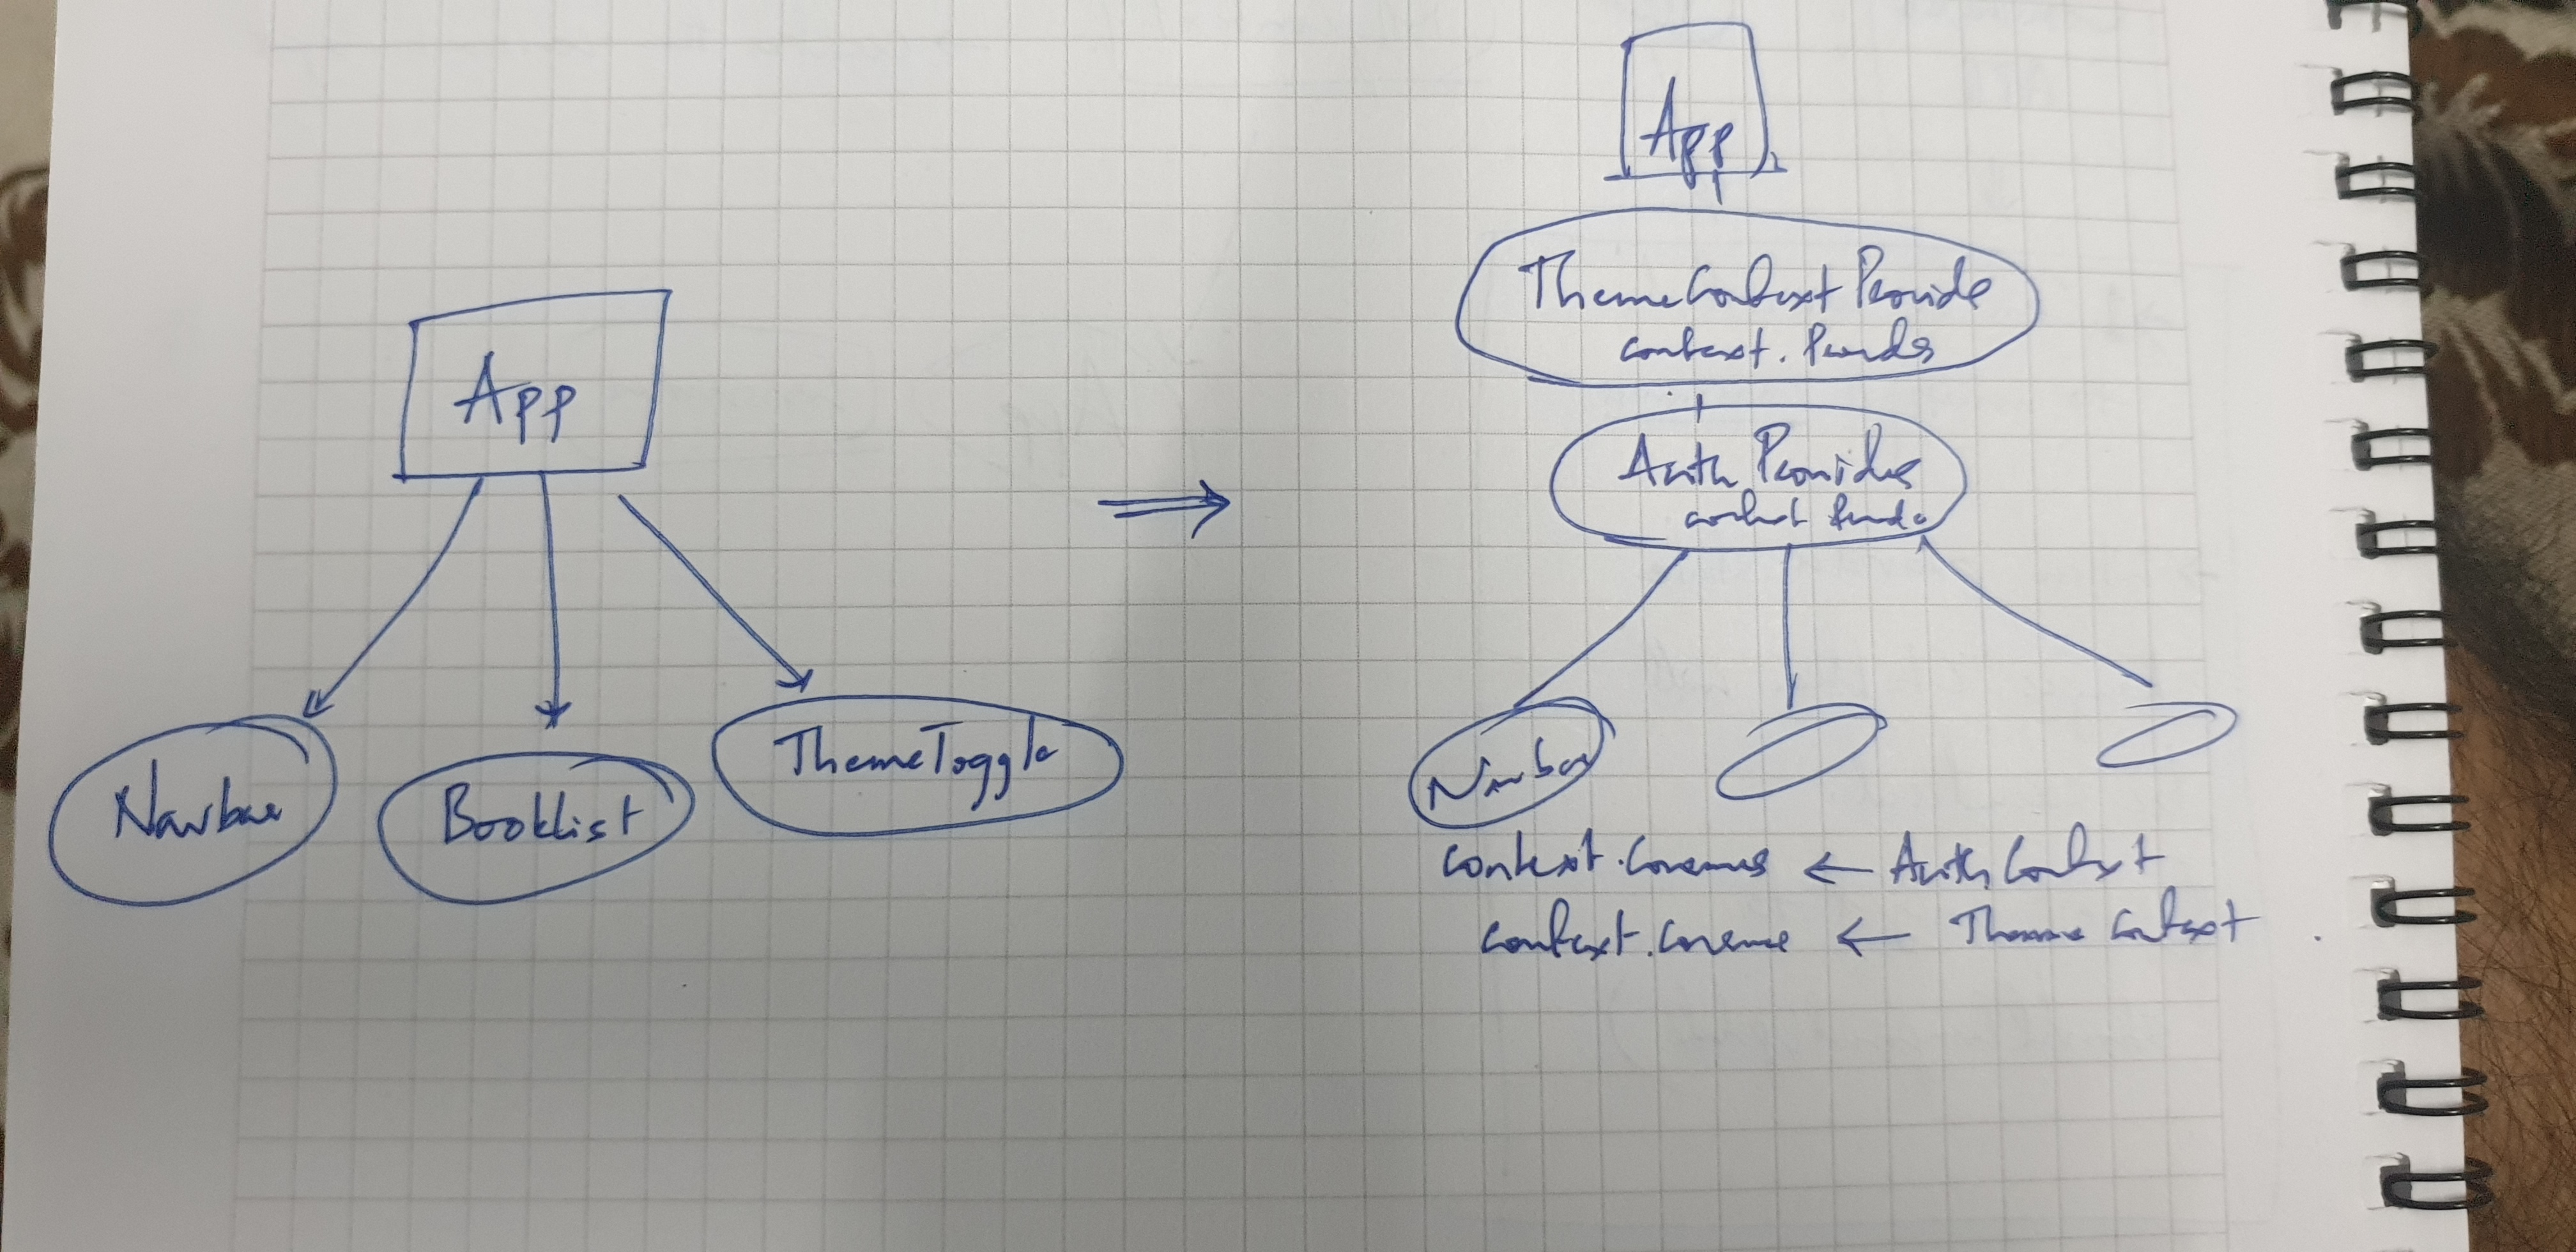 App
Navbar
Booklist
ThemeToggle
App
ThemeContextProvide
context.
Auth Provider
context
Navbar
context.consume ← Auth Context
context.consume ← Theme context